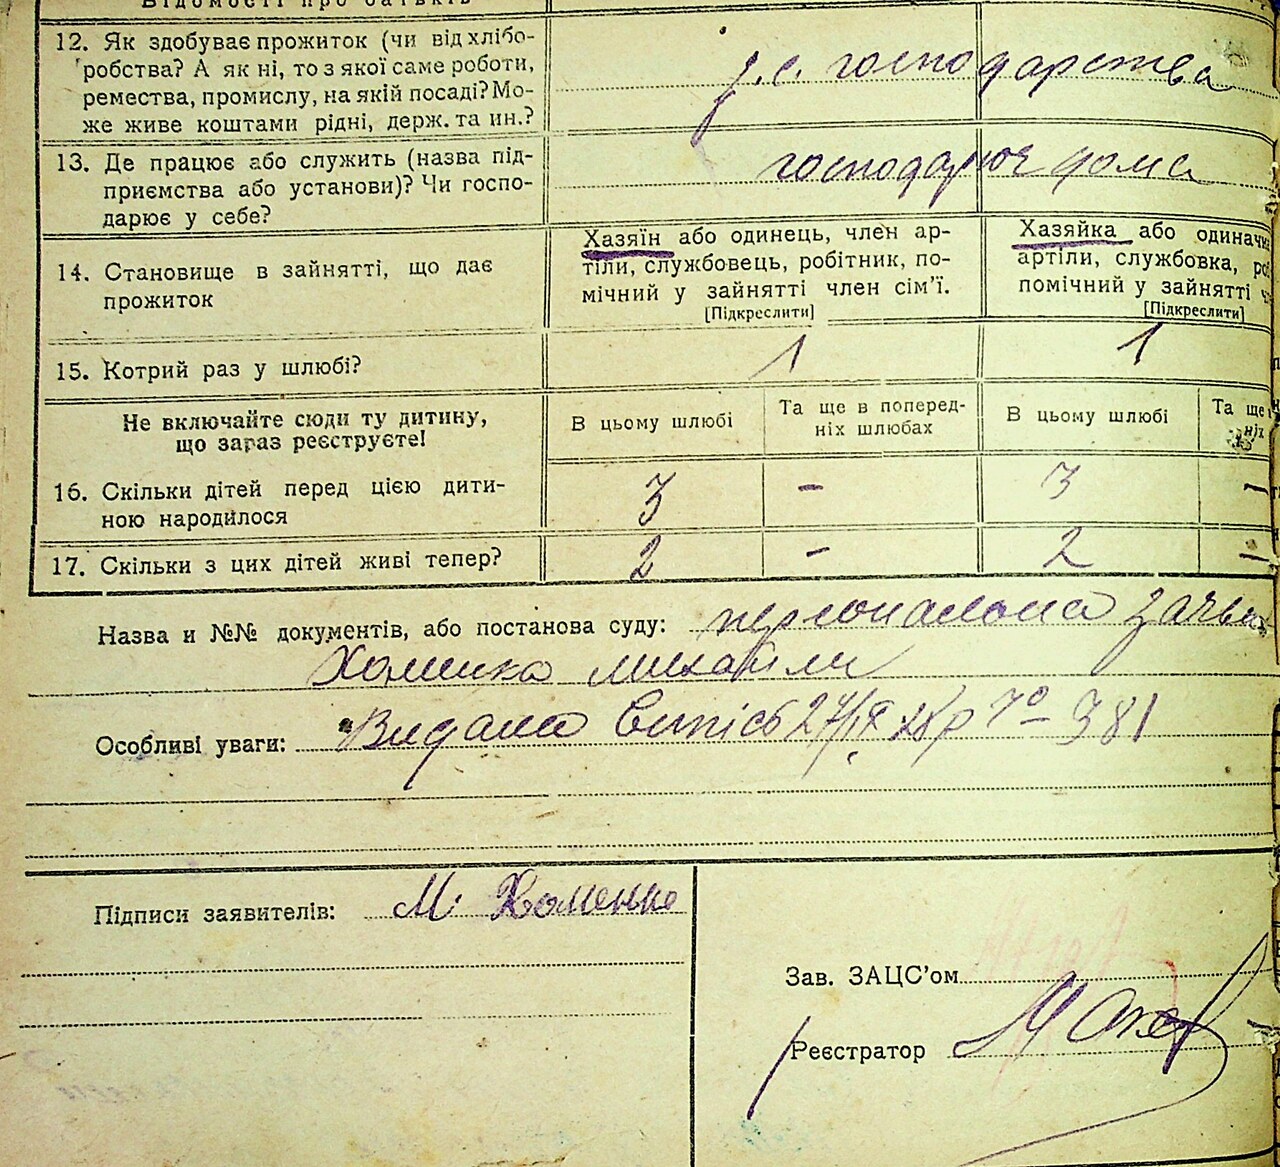 Відомості про батьків
12. Як здобуває прожиток (чи від хлібо-
робства? А як ні, то з якої саме роботи,
ремества, промислу, на якій посаді? Мо-
же живе коштами рідні, держ. та ин.?
с. господарства
13. Де працює або служить (назва під-
приємства або установи)? Чи госпо-
дарює у себе?
господарює дома
14. Становище в зайнятті, що дає
прожиток
Хазяїн або одинець, член ар-
тілі, службовець, робітник, по-
мічний у зайнятті член сім'ї.
[Підкреслити]
Хазяйка або одиначка
артіли, службовка,
помічний у зайнятті
[Підкреслити]
15. Котрий раз у шлюбі?
1
1
Не включайте сюди ту дитину,
що зараз реєструєте!
В цьому шлюбі
Та ще в поперед-
ніх шлюбах
В цьому шлюбі
Та ще
ніх
16. Скільки дітей перед цією дити-
ною народилося
3 - 3 -
17. Скільки з цих дітей живі тепер?
2 - 2 -
Назва и №№ документів, або постанова суду: персональна заява
Хоменка Михайла
Особливі уваги: Видано Випісь 27/IX 28р № 381
Підписи заявителів: М. Хоменко
Зав. ЗАЦС'ом
Реєстратор